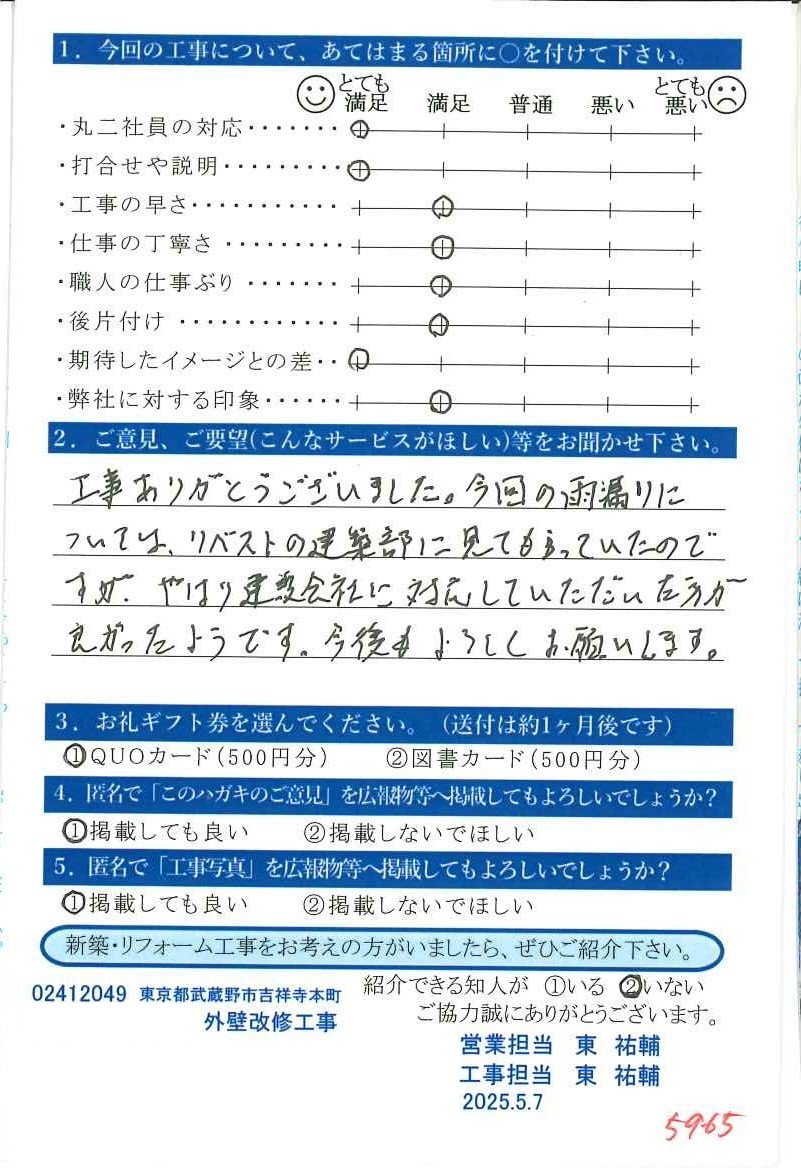 1. 今回の工事について、あてはまる箇所に○を付けて下さい。
とても満足 満足 普通 悪い とても悪い
・丸二社員の対応・・・・・・・
・打合せや説明・・・・・・・・
・工事の早さ・・・・・・・・・・
・仕事の丁寧さ・・・・・・・・・
・職人の仕事ぶり・・・・・・・
・後片付け・・・・・・・・・・・・
・期待したイメージとの差・・
・弊社に対する印象・・・・・・
2. ご意見、ご要望(こんなサービスがほしい)等をお聞かせ下さい。
工事ありがとうございました。今回の雨漏りに
ついては、リベストの建築部に見てもらっていたので
すが、やはり建設会社に対応していただいた方が
良かったようです。今後もよろしくお願いします。
3. お礼ギフト券を選んでください。(送付は約1ヶ月後です)
①QUOカード(500円分) ②図書カード(500円分)
4. 匿名で「このハガキのご意見」を広報物等へ掲載してもよろしいでしょうか?
①掲載しても良い ②掲載しないでほしい
5. 匿名で「工事写真」を広報物等へ掲載してもよろしいでしょうか?
①掲載しても良い ②掲載しないでほしい
新築・リフォーム工事をお考えの方がいましたら、ぜひご紹介下さい。
紹介できる知人が ①いる ②いない
02412049 東京都武蔵野市吉祥寺本町
ご協力誠にありがとうございます。
外壁改修工事
営業担当 東 祐輔
工事担当 東 祐輔
2025.5.7
5965